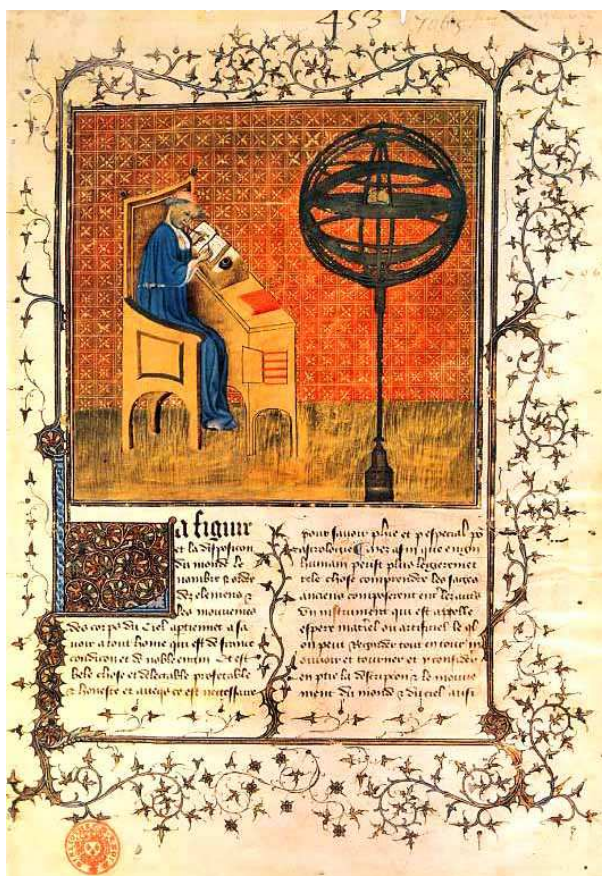 453
7065
a figure
et la disposicion
du monde le
nombre & ordre
des elemens &
les mouvemens
des corps du ciel aptiennent a sa
uoir a tout home qui est de franche
condicion et de noble engin Et est
bele chose et delectable profetable
& honeste et avecqs ce est necessaire
pour savoir phie et p especial po
astrologie Mez afin que engin
humain peust plus legierement
tele chose comprendre les sages
anciens composerent ent les autres
un instrument qui est appelle
espere materiel ou artificiel le ql
on peut regarder tout entour m
ouvoir et tourner et y considerer
en ptie la descripcion & le mouve
ment du monde & du ciel aussi